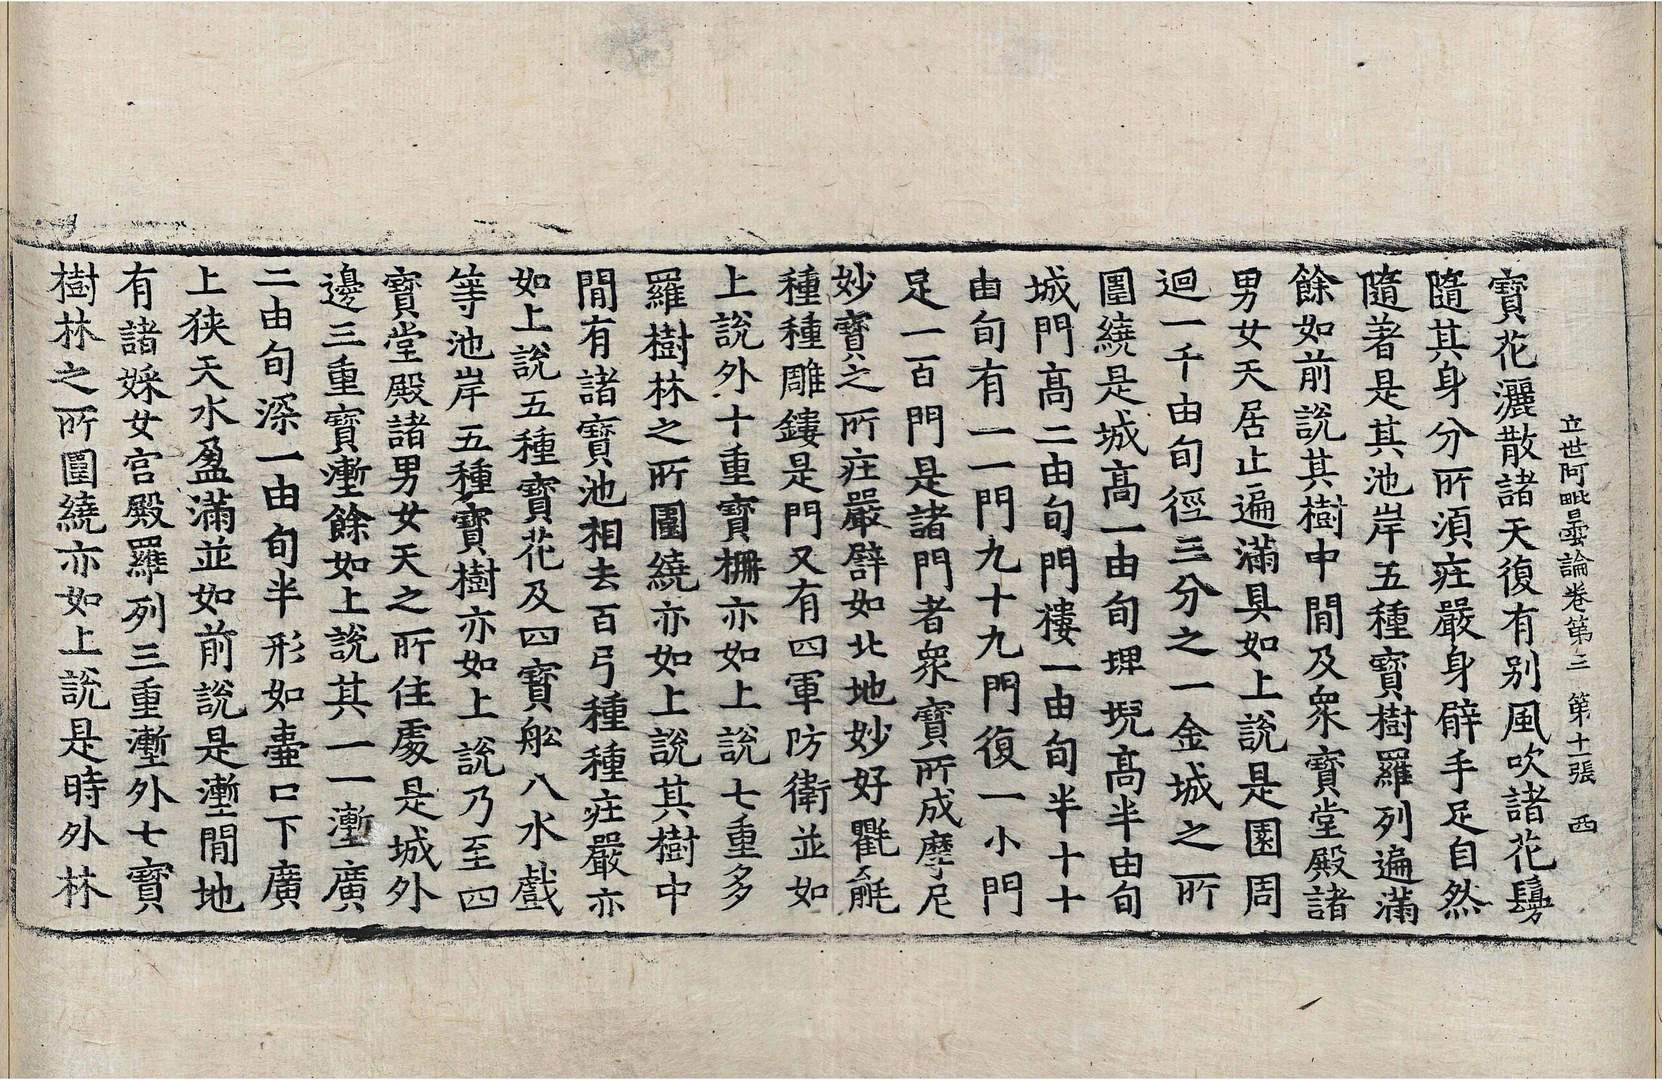 立世阿毗曇論卷第三 第十張 西
寶花灑散諸天復有別風吹諸花鬘
隨其身分所湏㽵嚴身臂手足自然
隨著是其池岸五種寶樹羅列遍滿
餘如前說其樹中閒及衆寶堂殿諸
男女天居止遍滿具如上說是園周
迴一千由旬徑三分之一金城之所
圍繞是城高一由旬埤堄高半由旬
城門高二由旬門樓一由旬半十十
由旬有一一門九十九門復一小門
足一百門是諸門者衆寶所成摩尼
妙寶之所㽵嚴譬如北地妙好氍毹
種種雕鏤是門又有四軍防衛並如
上說外十重寶柵亦如上說七重多
羅樹林之所圍繞亦如上說其樹中
閒有諸寶池相去百弓種種㽵嚴亦
如上說五種寶花及四寶舩八水戲
等池岸五種寶樹亦如上說乃至四
寶堂殿諸男女天之所住處是城外
邊三重寶壍餘如上說其一一壍廣
二由旬深一由旬半形如壷口下廣
上狹天水盈滿並如前說是壍閒地
有諸婇女宮殿羅列三重壍外七寶
樹林之所圍繞亦如上說是時外林